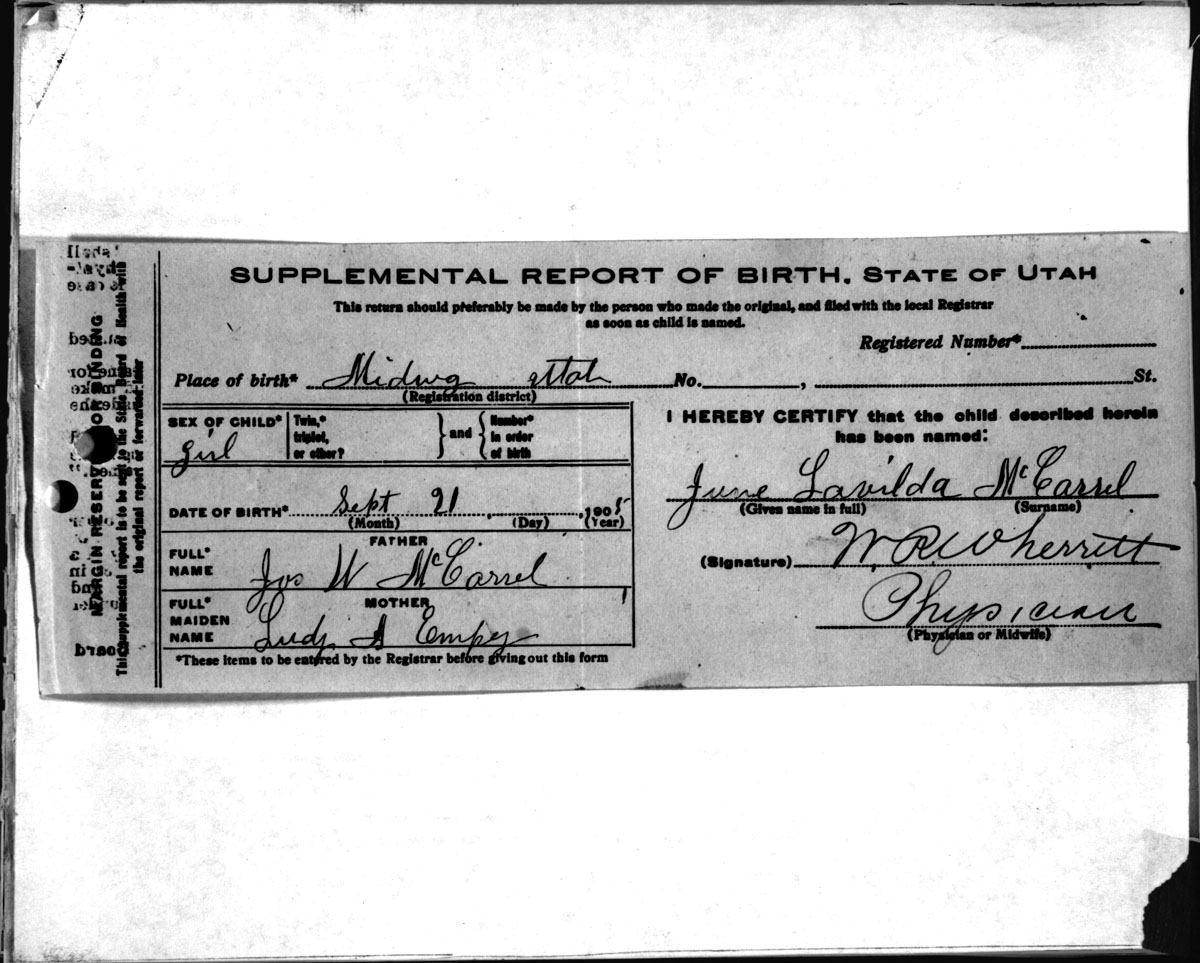 SUPPLEMENTAL REPORT OF BIRTH. STATE OF UTAH
This return should preferably be made by the person who made the original, and filed with the local Registrar
as soon as child is named.
Registered Number*
Place of birth* Midwa Utah No. , St.
(Registration district)
SEX OF CHILD* girl
Twin,* triplet, or other? } and { Number* in order of birth
DATE OF BIRTH* Sept 21, 1905
(Month) (Day) (Year)
FATHER
FULL* NAME Jos W McCarrel
MOTHER
FULL* MAIDEN NAME A Empey
*These items to be entered by the Registrar before giving out this form
I HEREBY CERTIFY that the child described herein
has been named:
June Lavilda McCarrel
(Given name in full) (Surname)
(Signature) W. R. Wherritt
Physician
(Physician or Midwife)
MARGIN RESERVED FOR BINDING
This supplemental report is to be sent to the State Board of Health with
the original report or forwarded later